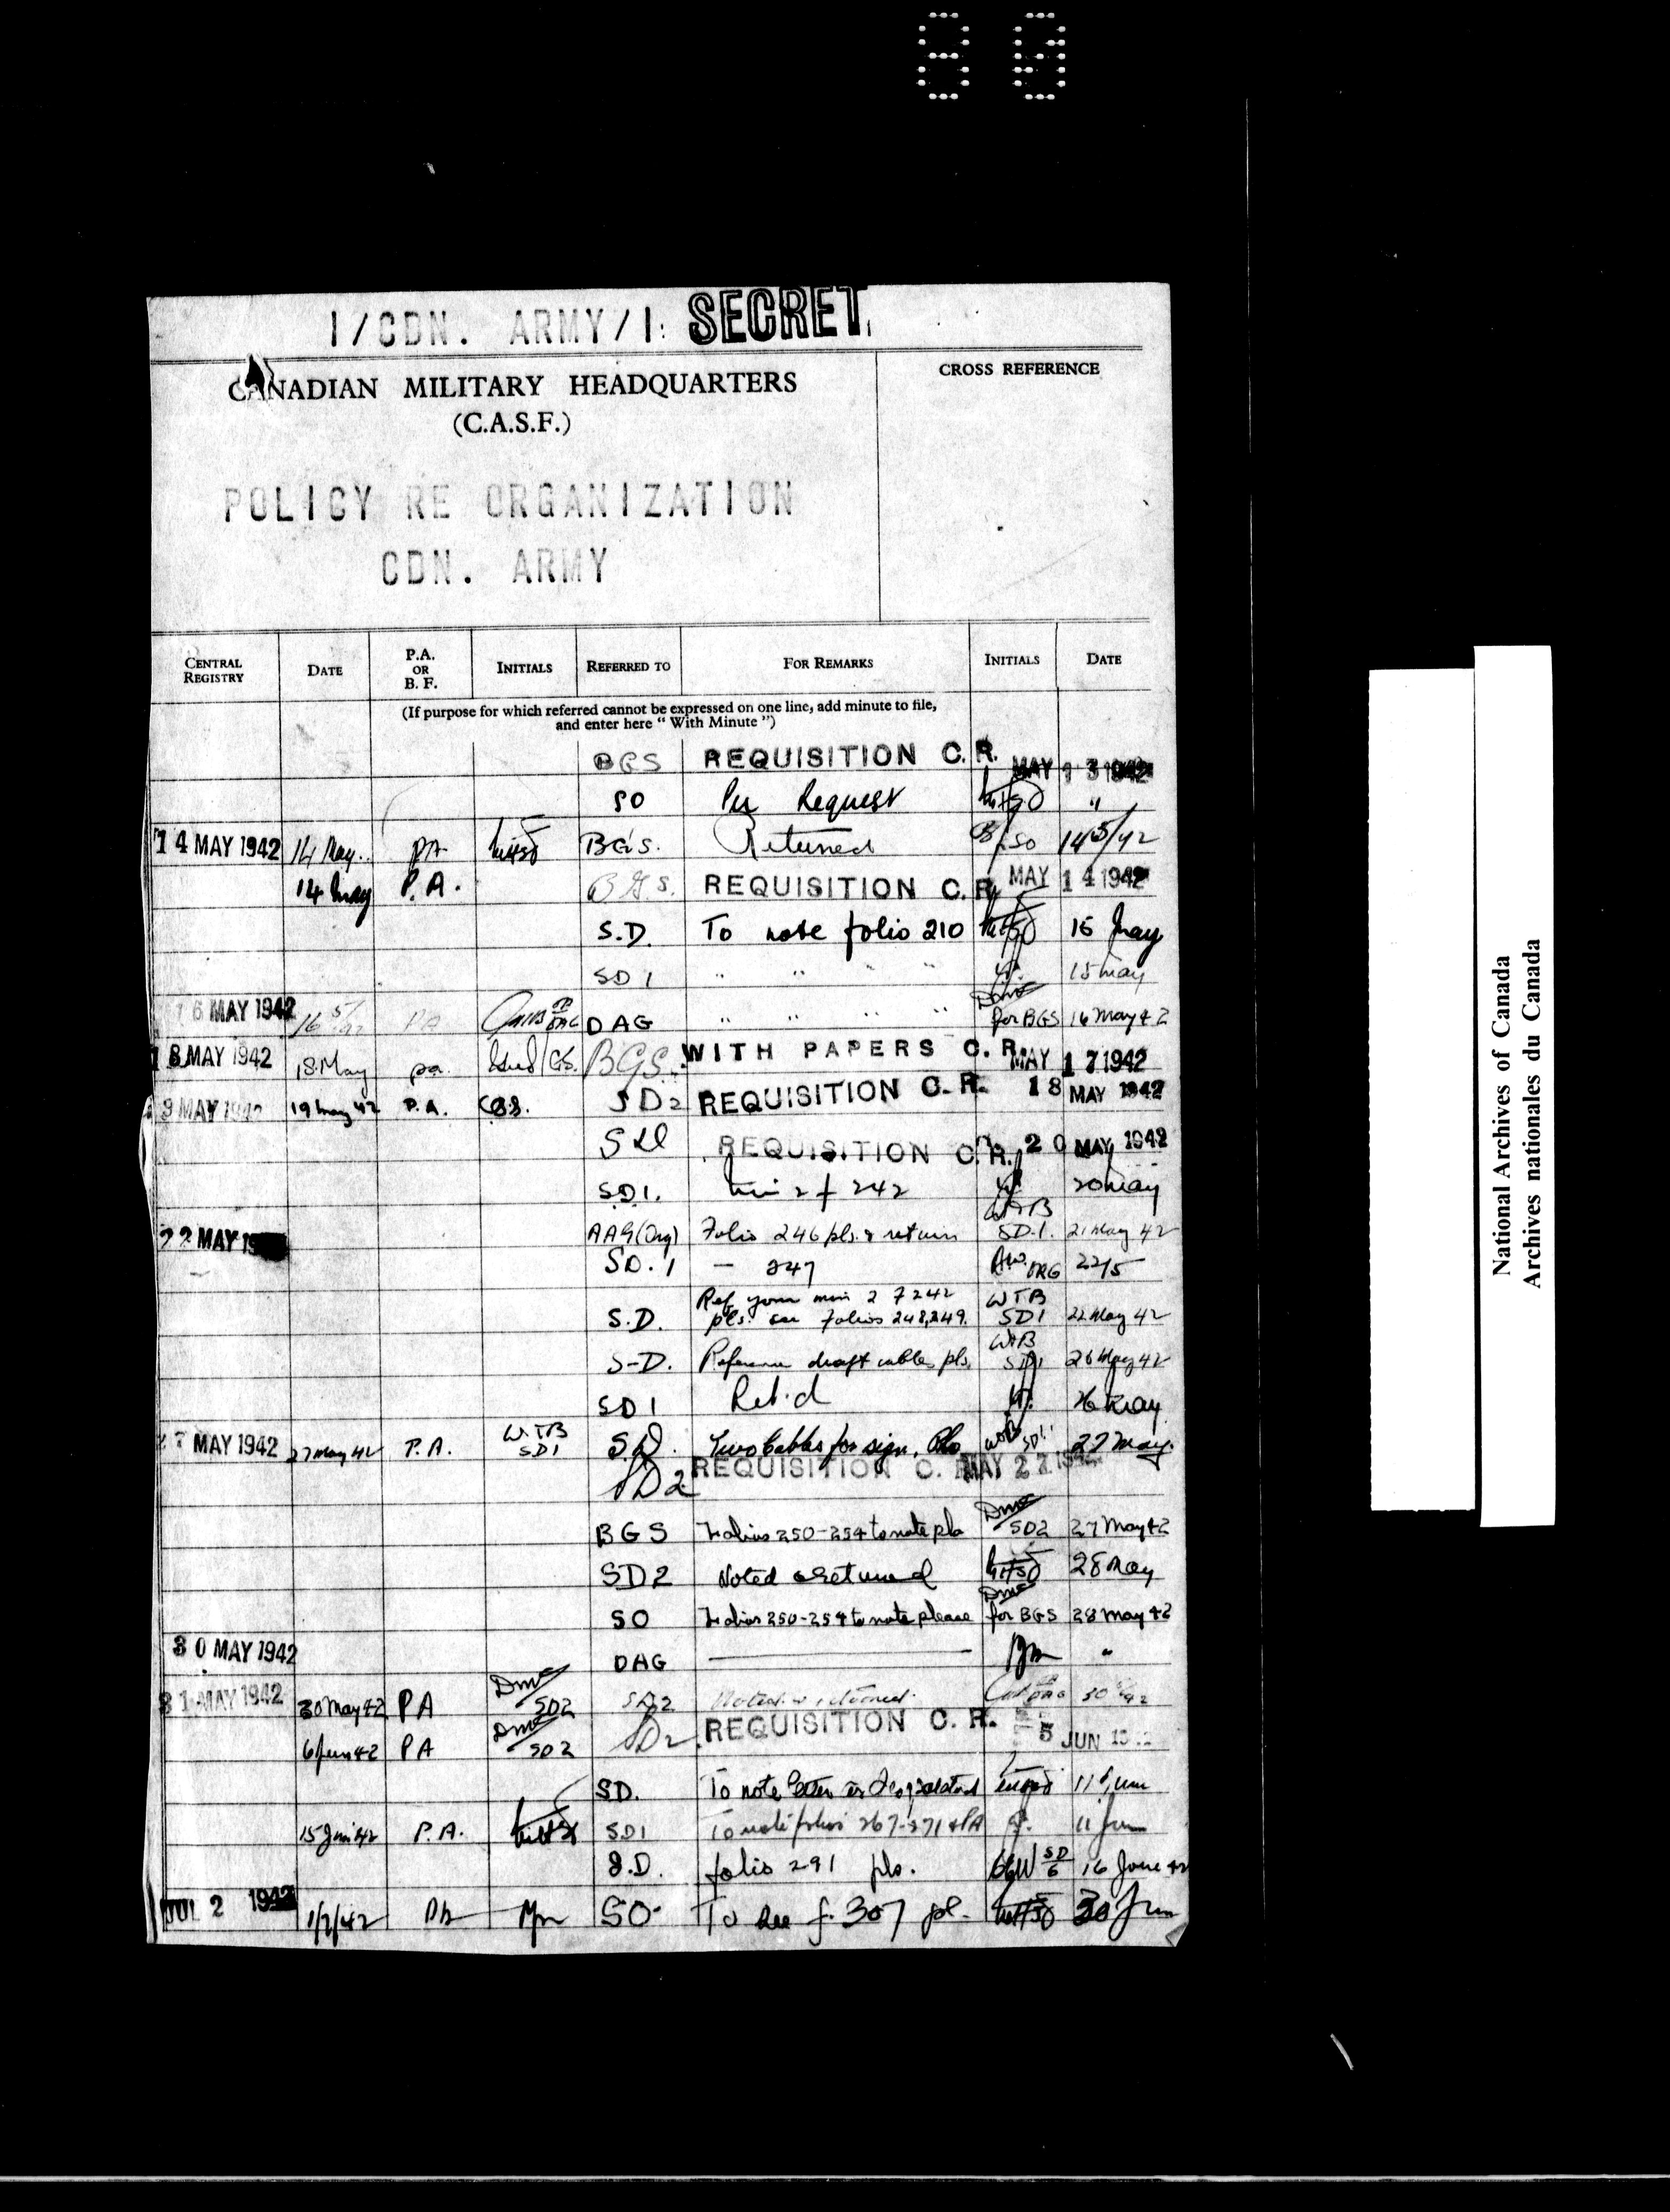 1/CDN. ARMY/1. SECRET
CANADIAN MILITARY HEADQUARTERS
(C.A.S.F.)
CROSS REFERENCE
POLICY RE ORGANIZATION
CDN. ARMY
CENTRAL REGISTRY DATE P.A. OR B. F. INITIALS REFERRED TO FOR REMARKS INITIALS DATE
(If purpose for which referred cannot be expressed on one line, add minute to file,
and enter here " With Minute ")
BGS REQUISITION C.R. MAY 13 1942
SO Per Request "
14 MAY 1942 14 May. PA BGS. Returned SO 14/5/42
14 May P.A. B.G.S. REQUISITION C.R. MAY 14 1942
S.D. To note folio 210 15 May
SD 1 " " " " 15 may
16 MAY 1942 16/5/42 PA DAG " " " " for BGS 16 May 42
18 MAY 1942 18 May pa. BGS. WITH PAPERS C.R. MAY 17 1942
9 MAY 1942 19 May 42 P.A. SD2 REQUISITION C.R. 18 MAY 1942
SD REQUISITION C.R. 20 MAY 1942
SD1. min 2 f 242 20 May
22 MAY AAG(Org) Folio 246 pls. & return WTB SD.1. 21 May 42
SD.1 — 247 ORG 22/5
S.D. Ref your min 2 F 242 pls. see Folios 248,249. WTB SD1 22 May 42
S-D. Reference draft cables pls. WTB SD1 26 May 42
SD 1 Ret'd 26 May
27 MAY 1942 27 May 42 P.A. W.T.B SD1 S.D. Two Cables for sign. WTB SD1 27 May.
SD2 REQUISITION C.R. MAY 27 1942
BGS Folios 250-254 to note pls SD2 27 May 42
SD2 Noted & returned 28 May
SO Folios 250-254 to note please for BGS 28 May 42
30 MAY 1942 DAG — "
31 MAY 1942 30 May 42 PA SD2 SD2 Noted & returned. DAG 30/5/42
6 Jun 42 PA SD2 SD2 REQUISITION C.R. 5 JUN
SD. To note letter 11 Jun
15 Jun 42 P.A. SD1 To note folios 267-271 & PA 11 Jun
S.D. folio 291 pls. SD 6 16 June 42
JUL 2 1942 1/7/42 PA SO To see f. 307 pl. 30 Jun
National Archives of Canada
Archives nationales du Canada